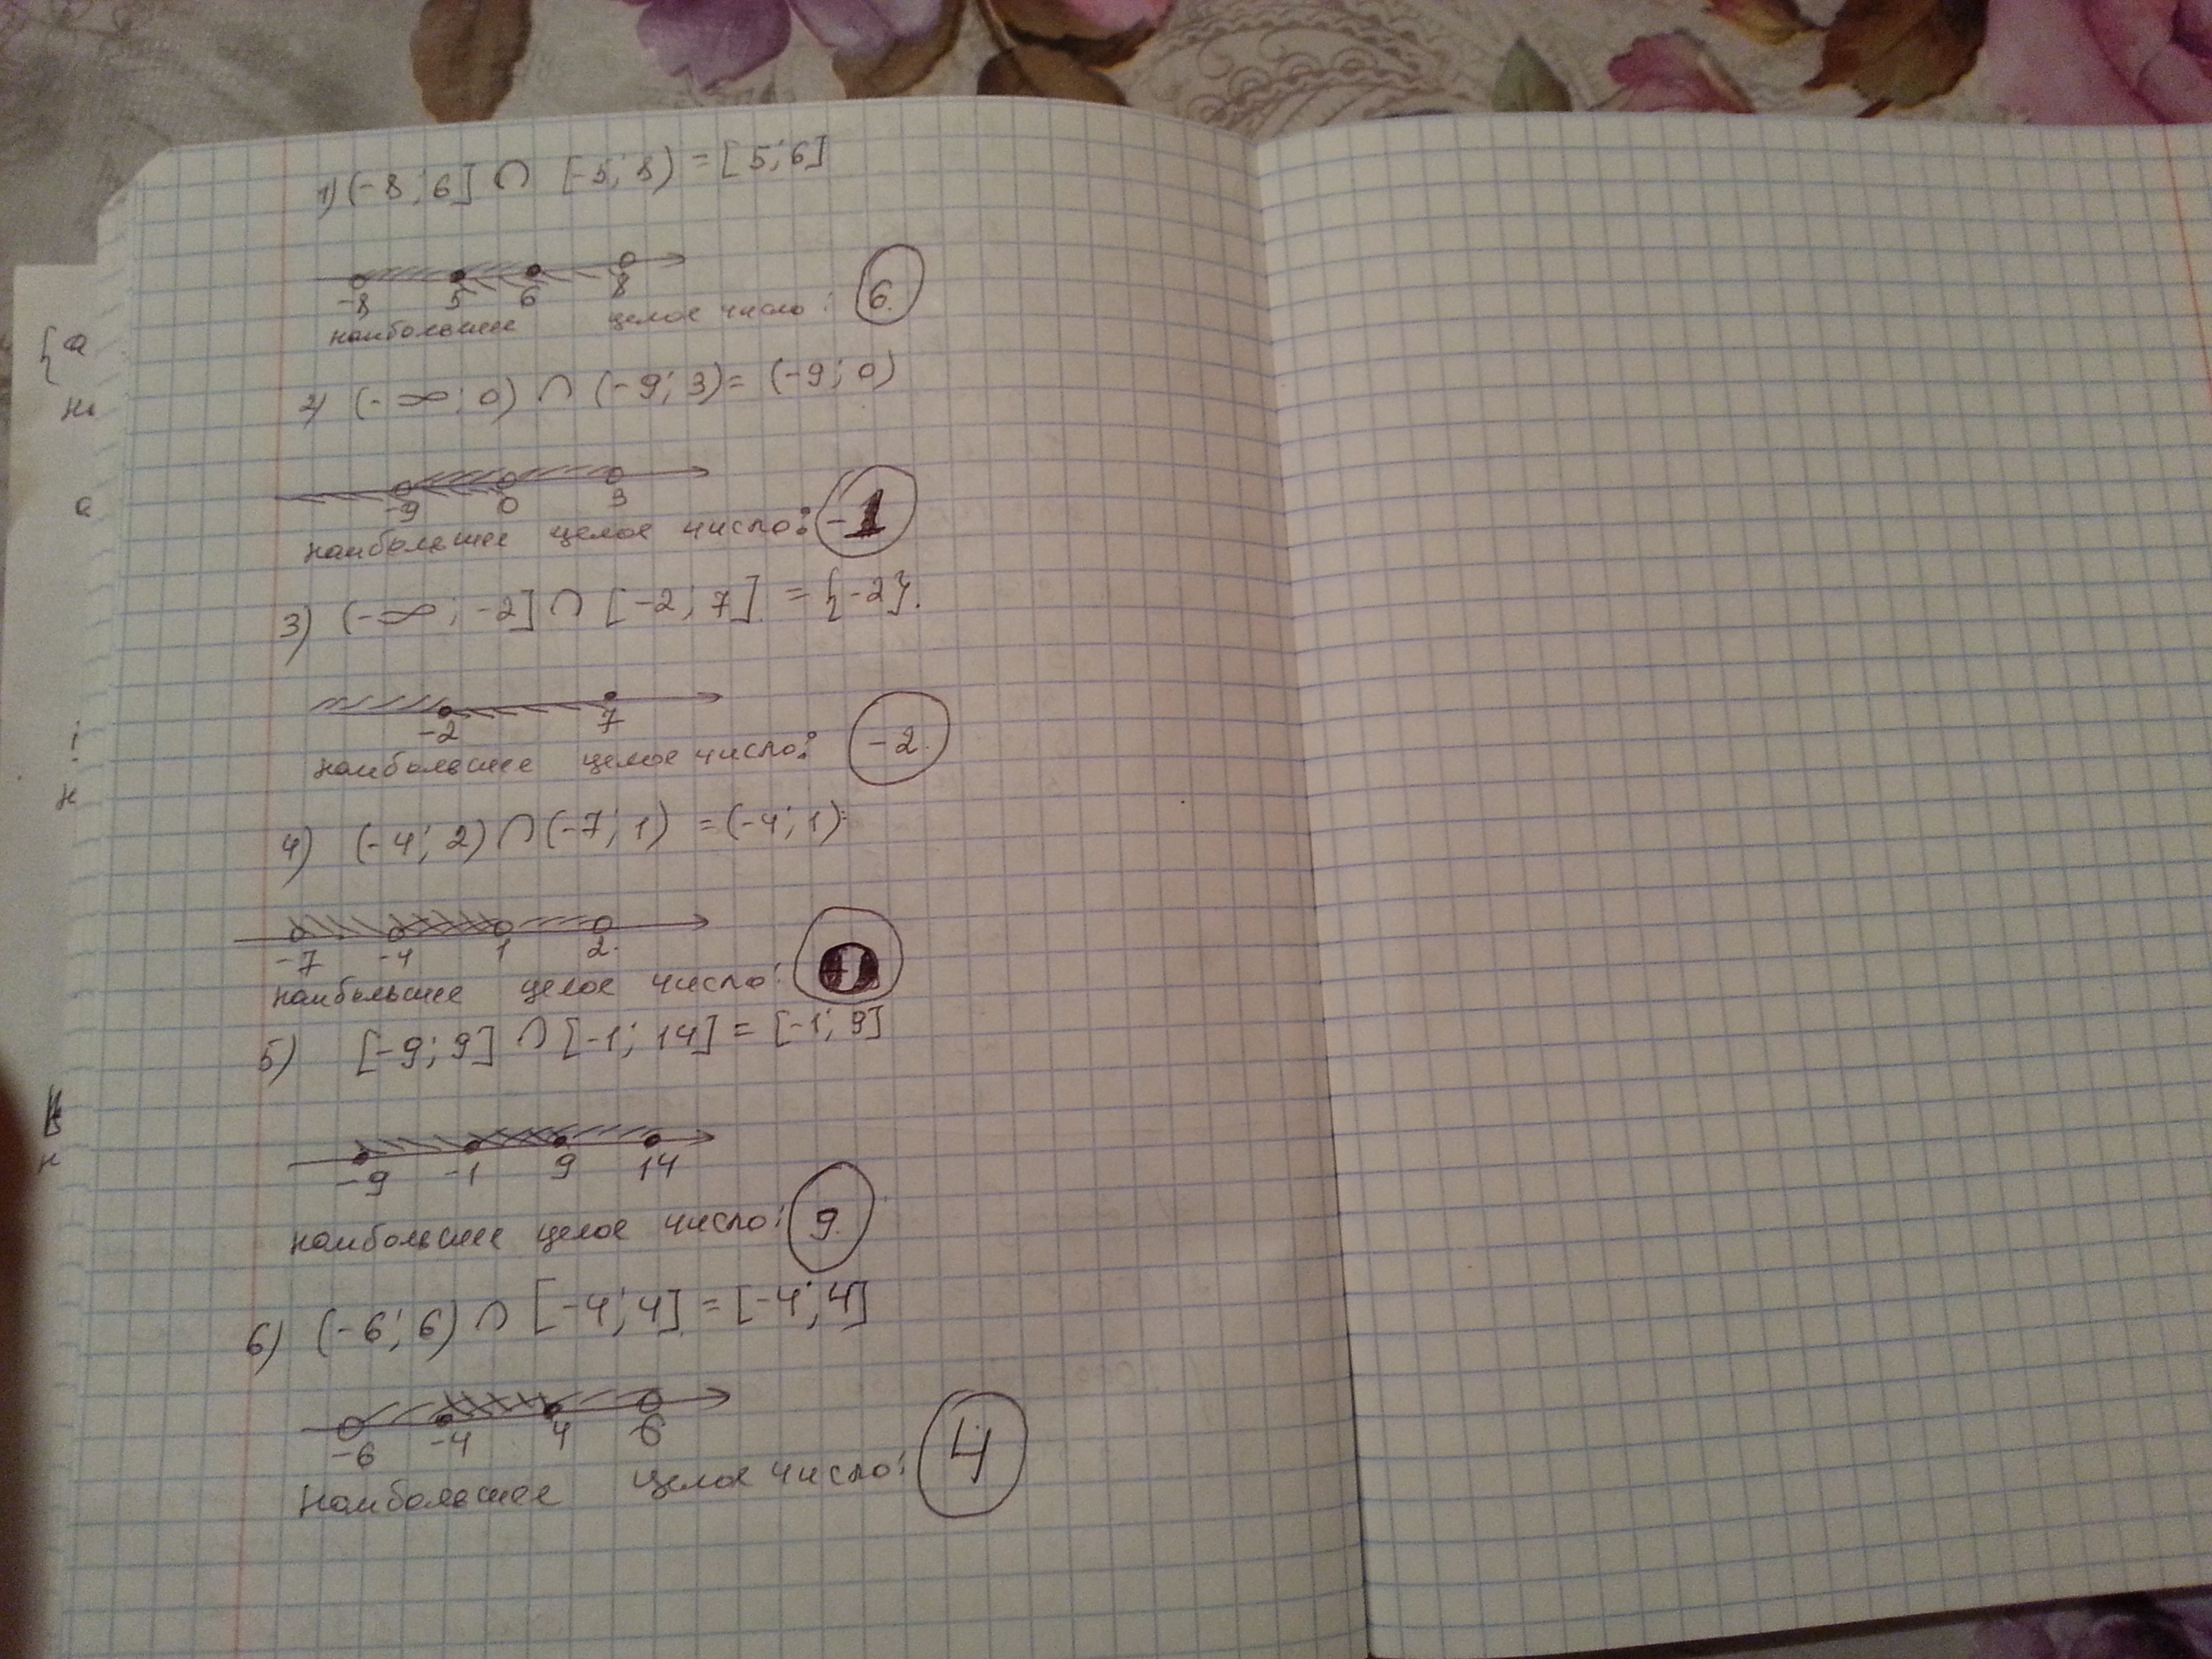 {а
н
а
н
н
1) (-8; 6] ∩ [-5; 8) = [5; 6]
-8 5 6 8
наибольшее целое число: 6.
2) (-∞; 0) ∩ (-9; 3) = (-9; 0)
-9 0 3
наибольшее целое число: -1
3) (-∞; -2] ∩ [-2; 7] = {-2}.
-2 7
наибольшее целое число: -2.
4) (-4; 2) ∩ (-7; 1) = (-4; 1).
-7 -4 1 2.
наибольшее целое число:
5) [-9; 9] ∩ [-1; 14] = [-1; 9]
-9 -1 9 14
наибольшее целое число: 9.
6) (-6; 6) ∩ [-4; 4] = [-4; 4]
-6 -4 4 6
Наибольшее целое число: 4